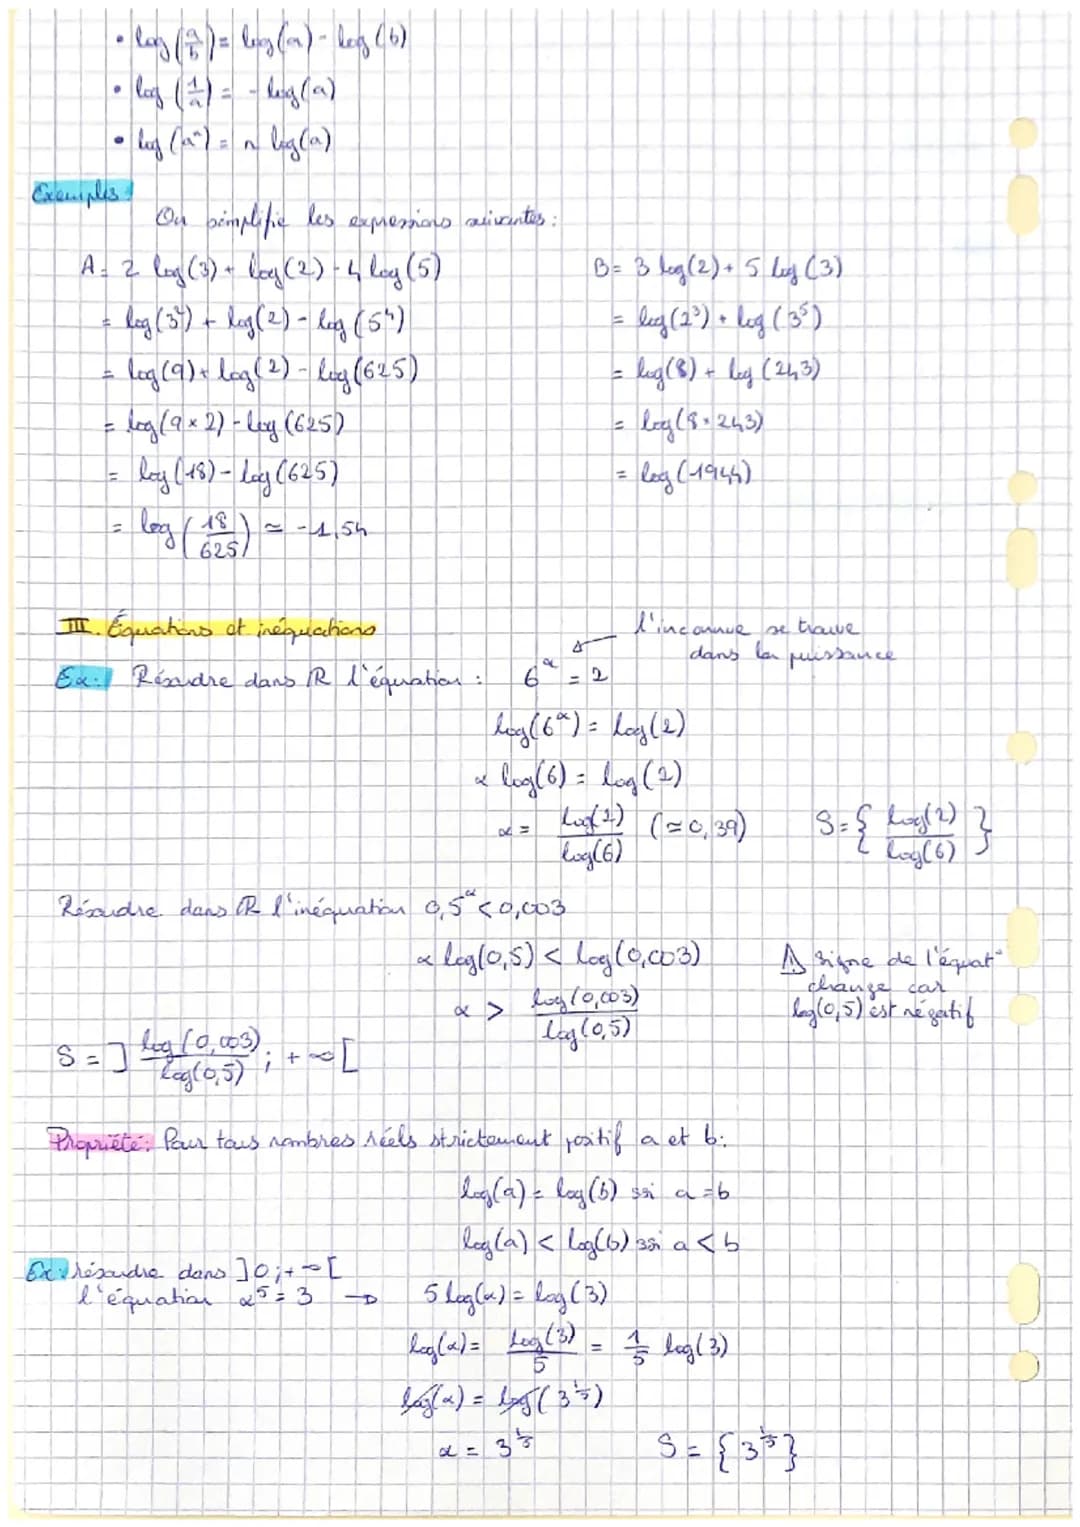 • log(a/b) = log(a) - log(b)
• log(1/a) = - log(a)
• log(aⁿ) = n log(a)
Exemples :
On simplifie les expressions suivantes :
A = 2 log(3) + log(2) - 4 log(5)
= log(3²) + log(2) - log(5⁴)
= log(9) + log(2) - log(625)
= log(9 × 2) - log(625)
= log(18) - log(625)
= log(18/625) ≃ -1,54
B = 3 log(2) + 5 log(3)
= log(2³) + log(3⁵)
= log(8) + log(243)
= log(8 × 243)
= log(1944)
III. Équations et inéquations
l'inconnue se trouve
dans la puissance
Ex : Résoudre dans ℝ l'équation : 6ˣ = 2
log(6ˣ) = log(2)
x log(6) = log(2)
x = log(2)/log(6) (≃ 0,39) S = { log(2)/log(6) }
Résoudre dans ℝ l'inéquation 0,5ˣ < 0,003
x log(0,5) < log(0,003)
x > log(0,003)/log(0,5)
⚠ signe de l'équat°
change car
log(0,5) est négatif
S = ] log(0,003)/log(0,5) ; +∞ [
Propriété : Pour tous nombres réels strictement positif a et b :
log(a) = log(b) ssi a = b
log(a) < log(b) ssi a < b
Ex : résoudre dans ]0 ; +∞[
l'équation x⁵ = 3 → 5 log(x) = log(3)
log(x) = log(3)/5 = 1/5 log(3)
log(x) = log(3^(1/5))
x = 3^(1/5) S = { 3^(1/5) }